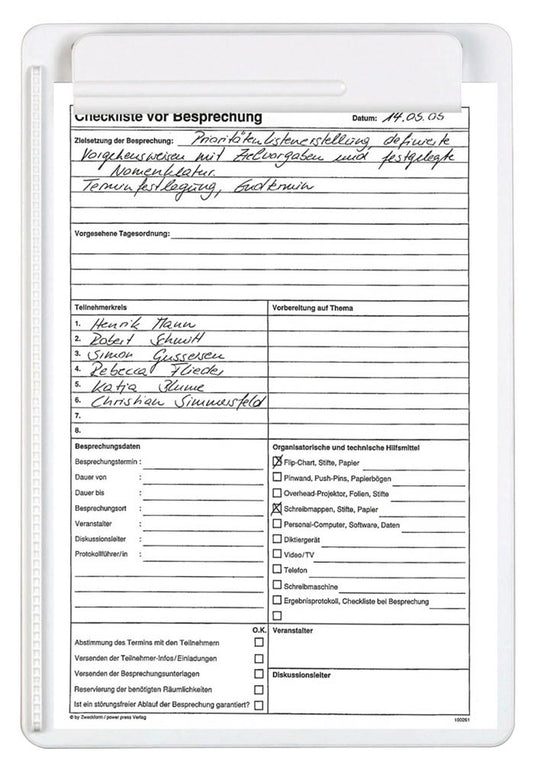 Checkliste vor Besprechung Datum: 14.05.05
Zielsetzung der Besprechung: Prioritätenlistenerstellung, definierte
Vorgehensweisen mit Zielvorgaben und festgelegte
Nomenklatur.
Terminfestlegung, Endtermin
Vorgesehene Tagesordnung:
Teilnehmerkreis
1. Henrik Mann
2. Robert Schmitt
3. Simon Gussersen
4. Rebecca Flieder
5. Katja Blume
6. Christian Simmersfeld
7.
8.
Vorbereitung auf Thema
Besprechungsdaten
Besprechungstermin :
Dauer von :
Dauer bis :
Besprechungsort :
Veranstalter :
Diskussionsleiter :
Protokollführer/in :
Organisatorische und technische Hilfsmittel
Flip-Chart, Stifte, Papier
Pinwand, Push-Pins, Papierbögen
Overhead-Projektor, Folien, Stifte
Schreibmappen, Stifte, Papier
Personal-Computer, Software, Daten
Diktiergerät
Video/TV
Telefon
Schreibmaschine
Ergebnisprotokoll, Checkliste bei Besprechung
O.K.
Abstimmung des Termins mit den Teilnehmern
Versenden der Teilnehmer-Infos/Einladungen
Versenden der Besprechungsunterlagen
Reservierung der benötigten Räumlichkeiten
Ist ein störungsfreier Ablauf der Besprechung garantiert?
Veranstalter
Diskussionsleiter
© by Zweckform / power press Verlag 100261